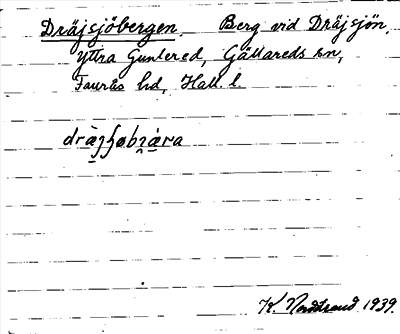 Dräjsjöbergen. Berg vid Dräjsjön,
Yttra Guntered, Gällareds sn,
Faurås hd, Hall. l.
K. Nordstrand 1939.